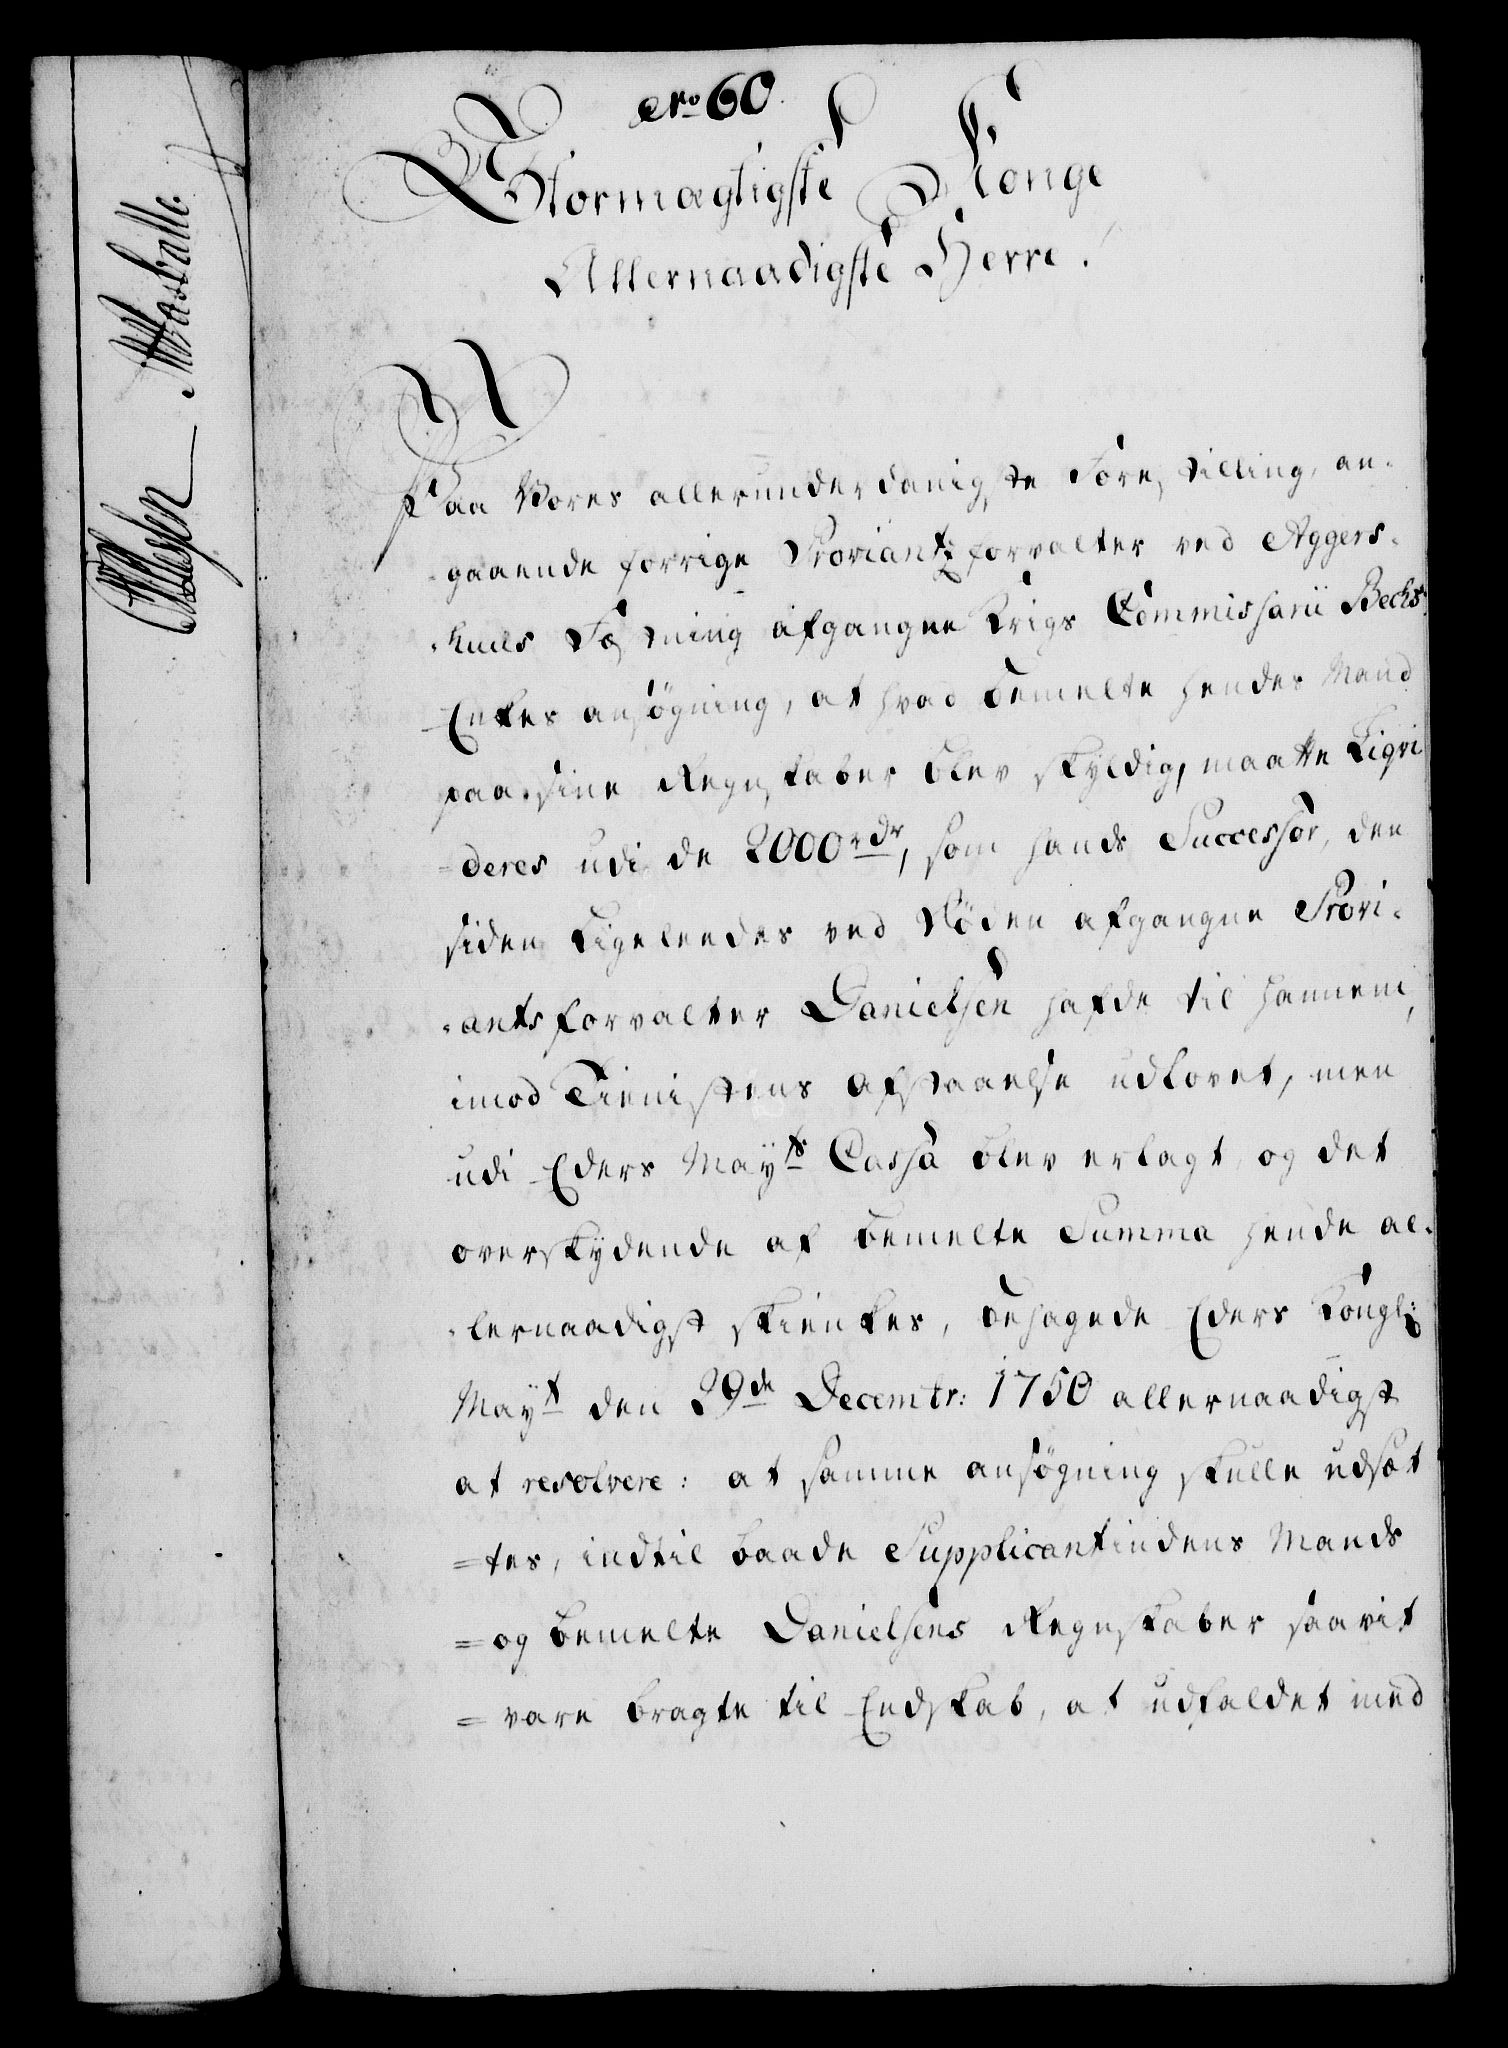 Nro 60.
Stormægtigste Konge
Allernaadigste Herre!
Paa Vores allerunderdanigste Forestilling, an-
-gaaende forrige Proviantz forvalter ved Aggers-
-huus Fæstning afgangne Krigs Commissarii Bechs
Enkes ansøgning, at hvad bemelte hendes Mand
paa sine Regnskaber blev skyldig, maatte Liqvi
-deres udi de 2000 rdr, som hands Successor, den
siden ligeleedes ved Døden afgangne Provi-
-antsforvalter Danielsen hafde til hannem,
imod Tienistens Afstaaelse udlovet, men
udi Eders Mayts Cassa blev erlagt, og det
overskydende af bemelte Summa hende al-
-lernaadigst skienkes, behagede Eders Kongl:
Mayt den 29de Decembr: 1750 allernaadigst
at resolvere: at samme ansøgning skulle udsæt
=tes, indtil baade Supplicantindens Mands
=og bemelte Danielsens Regnskaber saavit
=vare bragte til Endskab, at udfaldet med